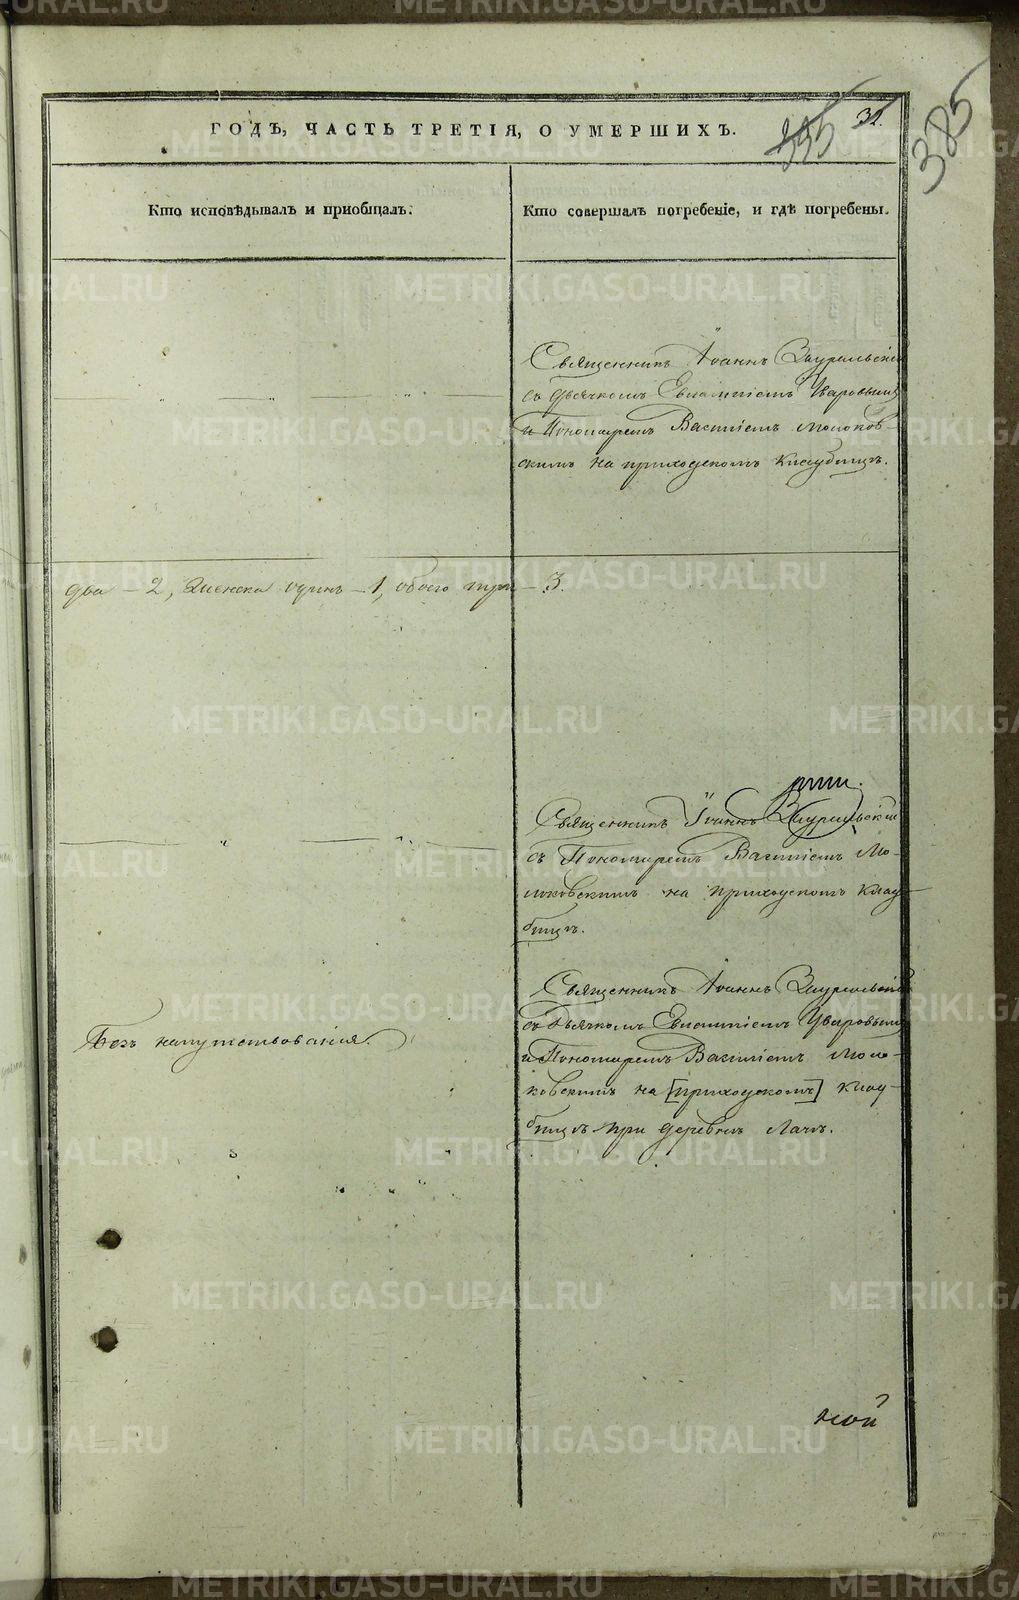 ГОДЪ, ЧАСТЬ ТРЕТІЯ, О УМЕРШИХЪ.
31.
335
385
Кто исповѣдывалъ и приобщалъ.
Кто совершалъ погребеніе, и гдѣ погребены.
Священникъ Іоаннъ Зауральскій
съ дьячкомъ Евлампіемъ Уваровымъ
и Пономаремъ Василіемъ Молоков-
скимъ на приходскомъ кладбищѣ.
два – 2, женска одинъ – 1, обоего три – 3.
Священникъ Іоаннъ Зауральскій
съ Пономаремъ Василіемъ Мо-
локовскимъ на приходскомъ клад-
бищѣ.
Священникъ Іоаннъ Зауральскій
съ Дьячкомъ Евлампіемъ Уваровымъ
Безъ напутствованія.
и Пономаремъ Василіемъ Моло-
ковскимъ на [приходскомъ] клад-
бищѣ при деревнѣ Лачѣ.
ной
METRIKI.GASO-URAL.RU